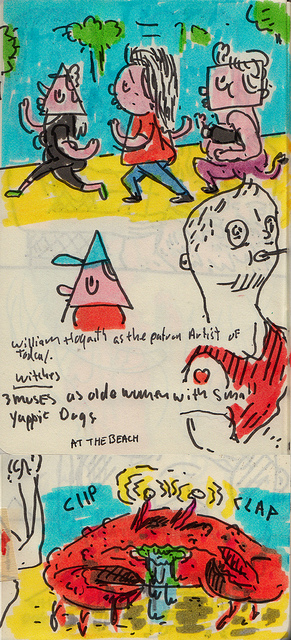 William Hogarth as the patron Artist of
Today.
Witches
3 muses as olde women with small
Yuppie Dogs
AT THE BEACH
CLIP
CLAP